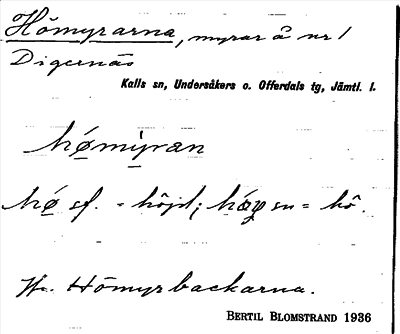 Hömyrarna, myrar å nr 1
Digernäs
Kalls sn, Undersåkers o. Offerdals tg, Jämtl. l.
hǿmýran
hǿ sf. = höjd; hǿy sn = hö.
Hömyrbackarna.
BERTIL BLOMSTRAND 1936